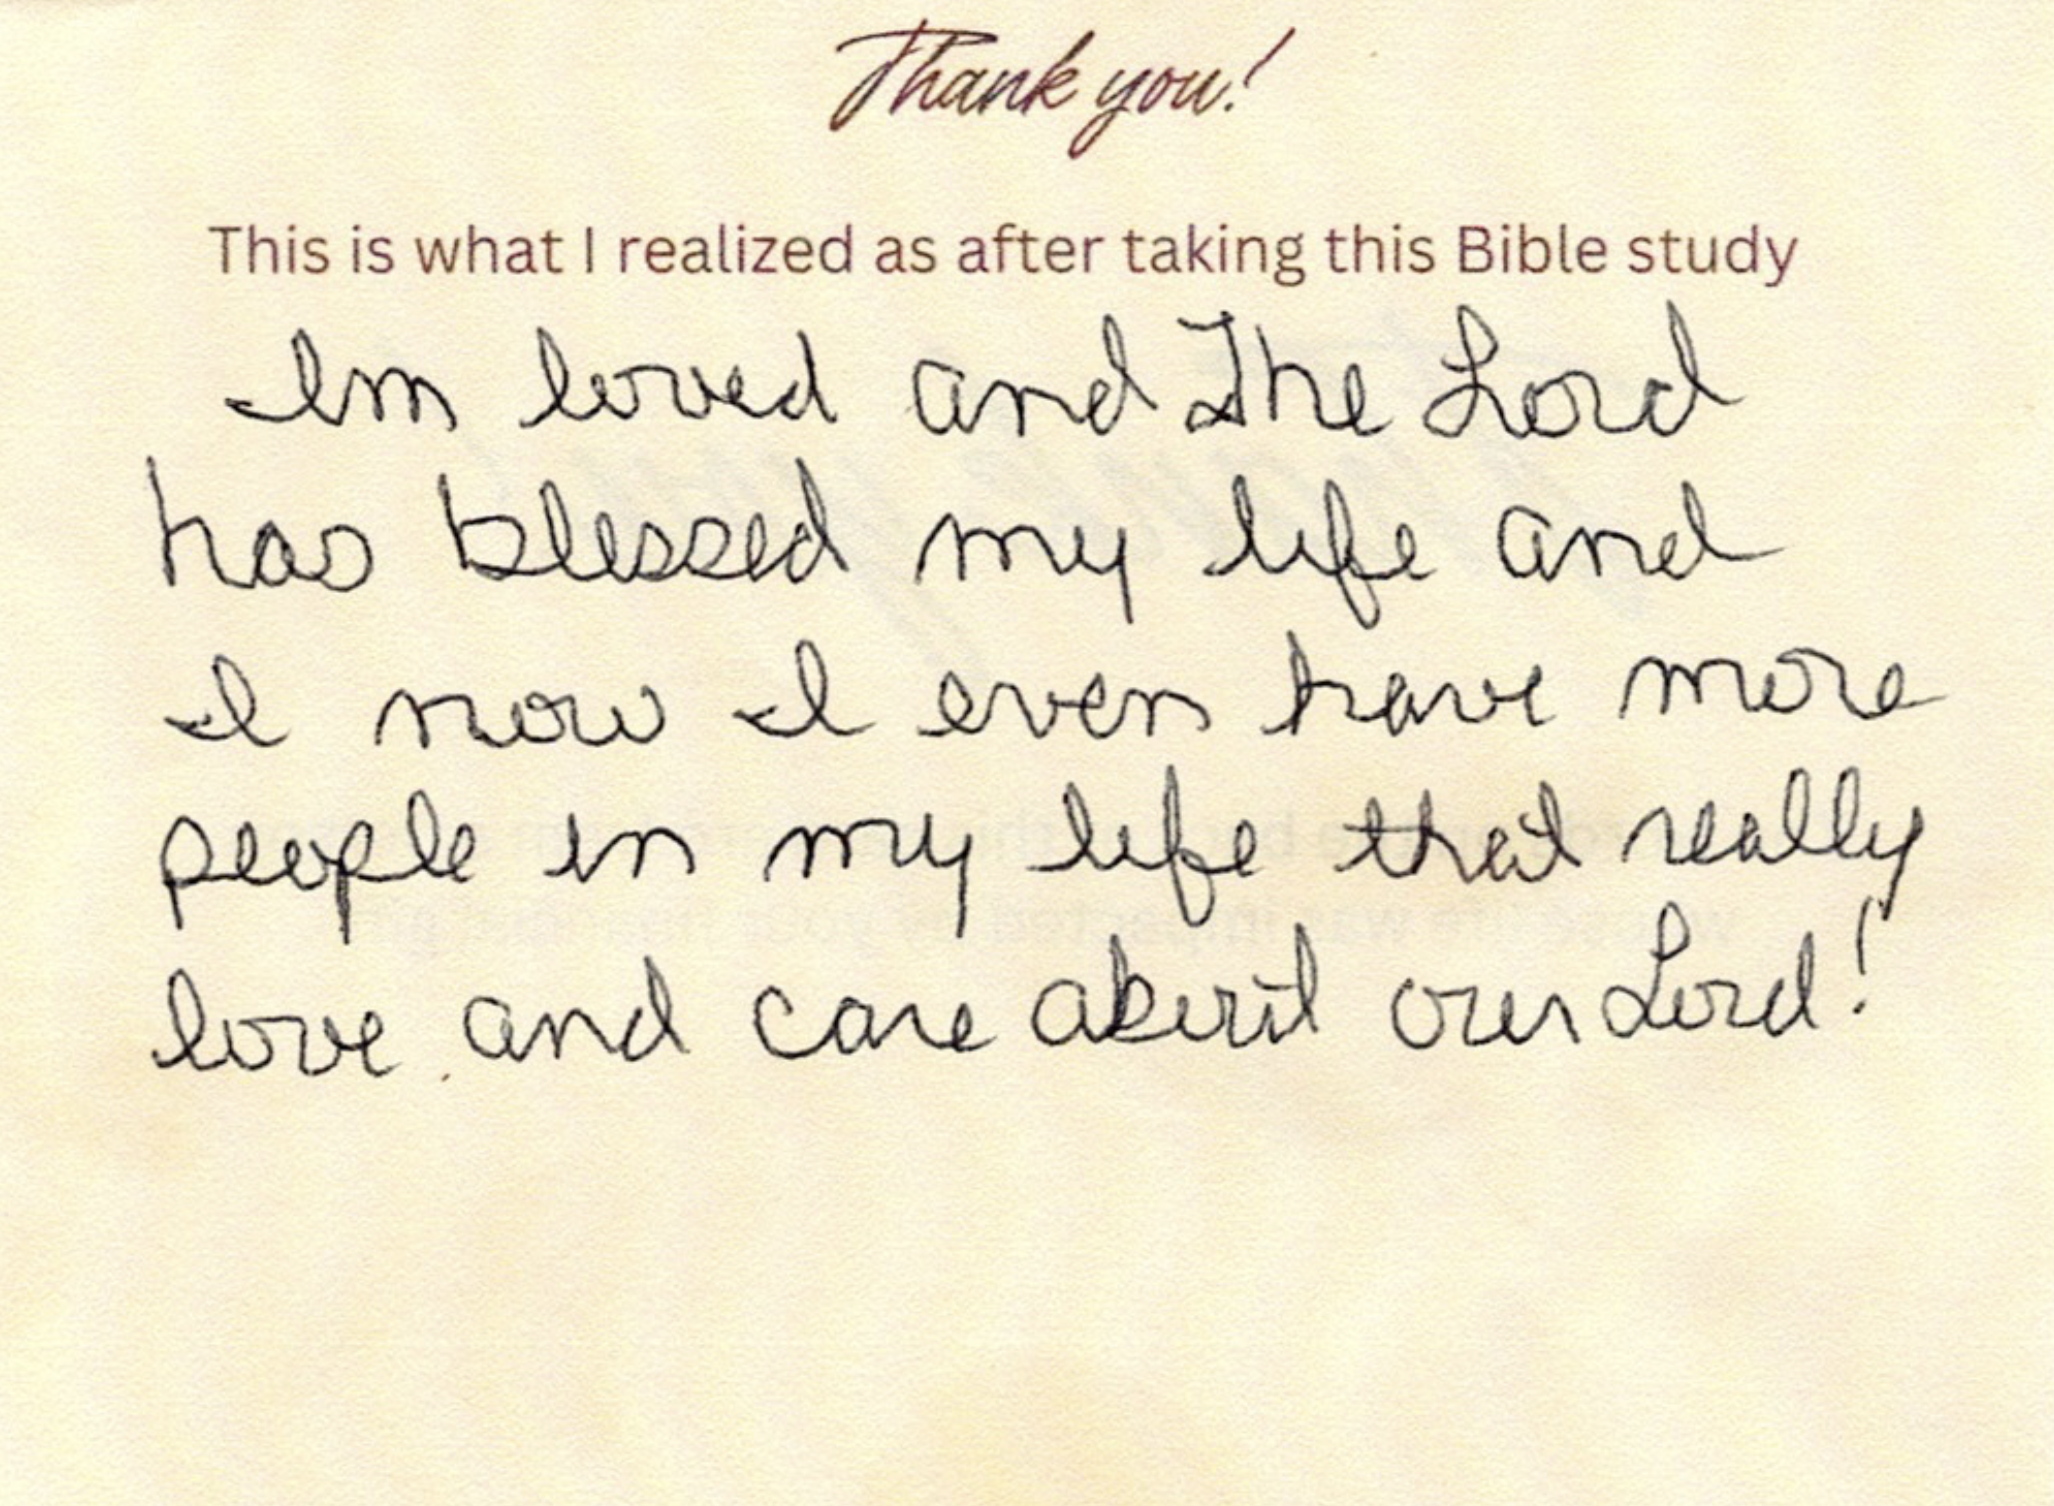 Thank you!
This is what I realized as after taking this Bible study
Im loved and The Lord
has blessed my life and
I now I even have more
people in my life that really
love and care about our Lord!